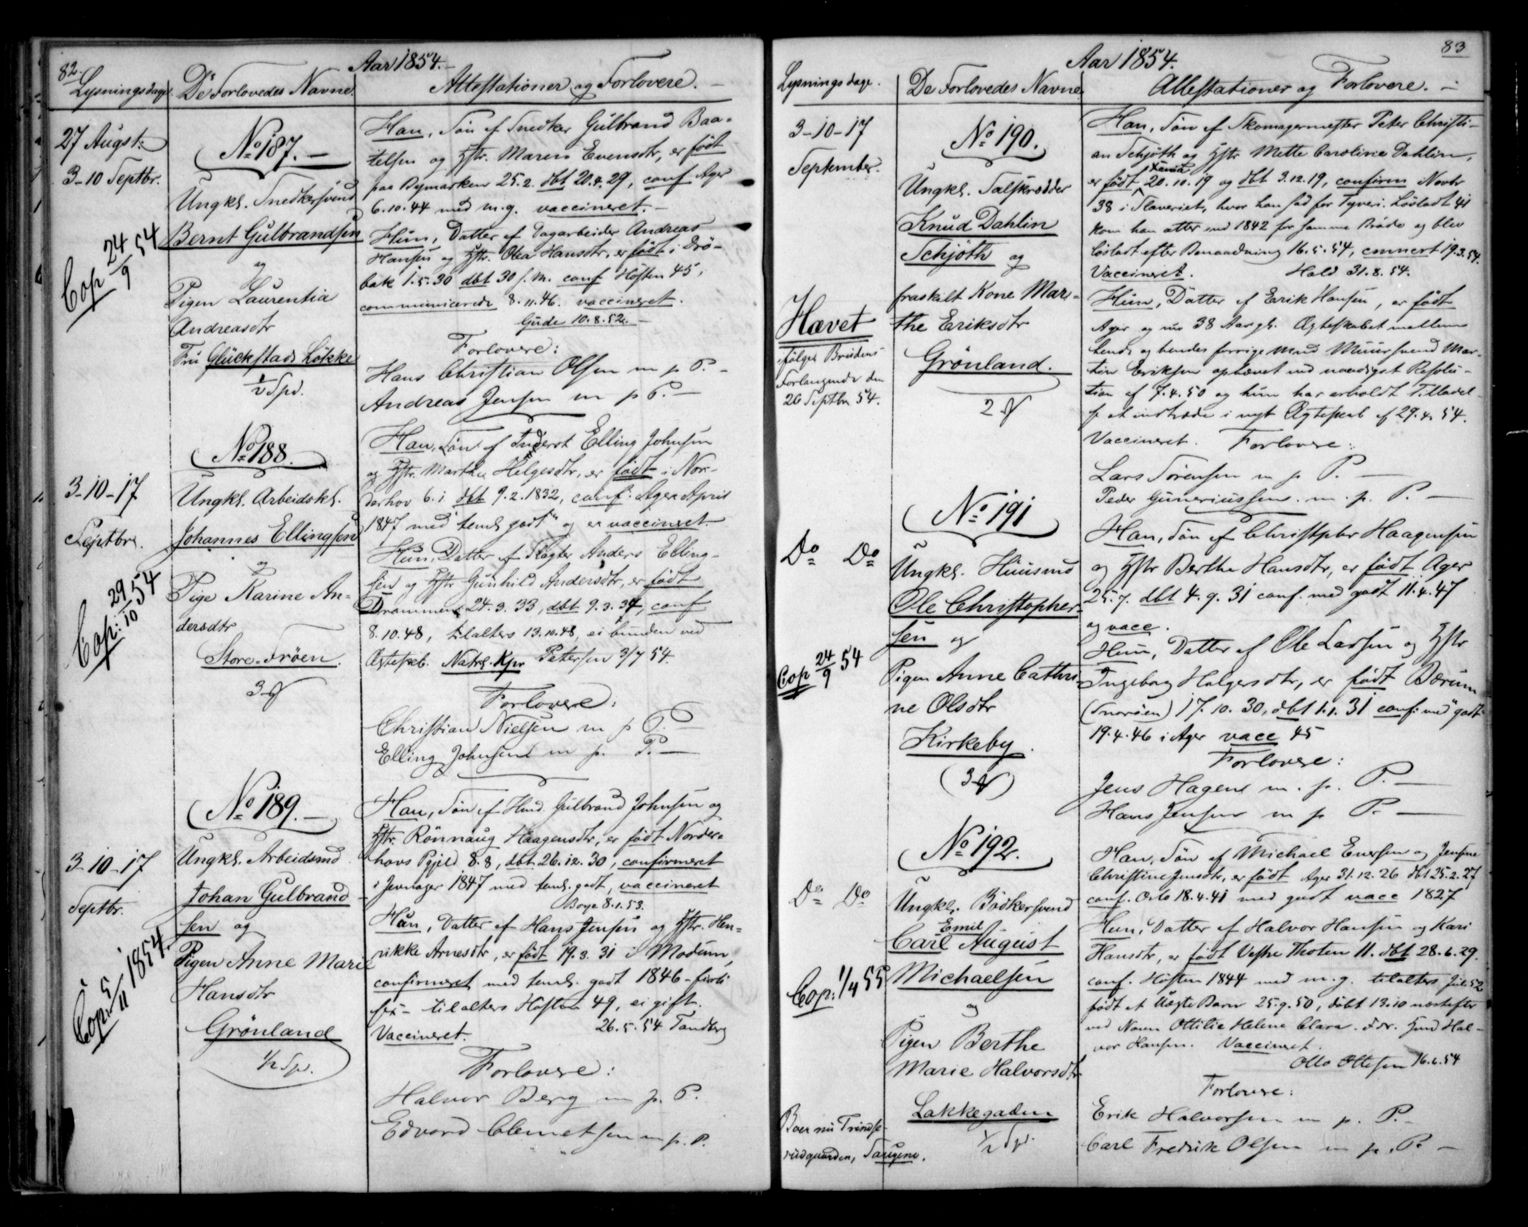 82.
Aar 1854.
Lysningsdage.
De Forlovedes Navne
Attestationer og Forlovere.
27 August
3-10 Septbr.
Cop 24/9 54
No 187.
Ungkl. Snedkersvend
Bernt Gulbrandsen
og
Pigen Laurentia
Andreasdtr
Fru Glückstads Løkke
1/2 Spd.
Han, Søn af Snedker Gulbrand Baa-
telsen og Hstr. Maren Evensdtr, er født
paa Bymarken 25.2. dbt 20.4.29, conf Ager
6.10.44 med m.g. vaccineret.
Hun, Datter af Dagarbeider Andreas
Hansen og Hstr. Olea Hansdtr, er født i Drö-
bak 1.5.30 dbt 30 s.M. conf Høsten 45,
communicerede 8.11.46. vaccineret.
Gude 10.8.52.
Forlovere:
Hans Christian Olsen m p P.
Andreas Jensen m p P.
3-10-17
Septbr.
Cop: 29/10 54
No 188.
Ungkl. Arbeidskl.
Johannes Ellingsen
og
Pige Karine An-
dersdtr
Store-Frøen.
3
Han, Søn af Inderst Elling Johnsen
og Hstr. Marthe Helgesdtr, er født i Nor-
derhov 6.1 dbt 9.2.1832, conf. Ager April
1847 med "teml. godt" og er vaccineret.
Hun, Datter af Anders Elling-
sen og Hstr Gunhild Andersdtr, er født
Drammen 24.3.33, dbt 9.3.34, conf
8.10.48, tilalters 13.10.48, ei bunden ved
Ægteskab. Natrl. Kpr Petersen 3/7 54.
Forlovere:
Christian Nielsen m p P.
Elling Johnsen m p. P.
3-10-17
Septbr.
Cop: 5/11 1854.
No 189.
Ungkl. Arbeidsmd
Johan Gulbrand-
sen og
Pigen Anne Marie
Hansdtr
Grönland
1/2 Spd.
Han, Søn af Hmd Gulbrand Johnsen og
Hstr. Rönnaug Haagensdtr, er født Norder-
hovs Pgjeld 8.8, dbt 26.12.30, confirmeret
i Jevnager 1847 med temb. godt, vaccineret
Boye 8.1.53.
Hun, Datter af Hans Jensen og Hstr. Hen-
rikke Arnesdtr, er født 19.3.31 i Modum
confirmeret med temb. godt 1846
tilalters Høsten 49, ei gift.
Vaccineret. 26.5.54 Tandberg
Forlovere:
Halvor Berg m p. P.
Edvard Clemetsen m p. P.
83
Aar 1854.
Lysningsdage.
De Forlovedes Navne
Attestationer og Forlovere.
3-10-17
September.
Hævet
ifølge Brudens
Forlangende den
26 Septbr 54.
No 190.
Ungkl.
Knud Dahlin
Schjøth og
fraskilt Kone Mar-
the Eriksdtr
Grönland.
2
Han, Søn af Skomagermester Peter Christi-
an Schjøth og Hstr Mette Caroline Dahlin,
er født 20.10.19 og dbt 3.12.19, confirm. Novbr
38 i Slaveriet, hvor han sad for Tyveri. Løsladt 41
kom han atter ind 1842 for samme Brøde og blev
løsladt efter Benaadning 16.5.54, 19.3.54.
Vaccineret. Hald 31.8.54.
Hun, Datter af Erik Hansen, er født
Ager og nu 38 Aar gl. Ægteskabet mellem
hende og hendes forrige Mand Muursvend Mar-
tin Eriksen ophævet ved naadigst Resolu-
tion af 7.4.50 og hun har erholdt Tilladel-
se at indtræde i nyt Ægteskab af 29.4.54.
Vaccineret. Forlovere:
Lars Sørensen m p P.
Peder Gunerius sen. m. p. P.
Do Do
Cop 24/9 54
No 191
Ungkl. Huusmd
Ole Christopher-
sen og
Pigen Anne Cathri-
ne Olsdtr
Kirkeby.
(3)
Han, Søn af Christopher Haagensen
og Hstr Berthe Hansdtr, er født Ager
25.7. dbt 4.9.31 conf. med godt 11.4.47
og vacc.
Hun, Datter af Ole Larsen og Hstr
Ingeborg Holgersdtr, er født Bærum
(Snarøen) 17.10.30, dbt 1.1.31 conf: med godt
19.4.46 i Ager vacc 45
Forlovere:
Jens Hagen m. p. P.
Hans Jensen m p P.
Do Do
Cop: 1/4 55
Boer nu Trondse-
rudgaarden, Taugene.
No 192.
Ungkl. Bødkersvend
Emil
Carl August
Michaelsen
og
Pigen Berthe
Marie Halvorsdtr
Lakkegaden
1/2 Spd.
Han, Søn af Michael Enersen og Jensine
Christine Jensdtr, er født Ager 31.12.26 dbt 25.2.27
conf. Oslo 18.4.41 med godt vacc 1827
Hun, Datter af Halvor Hansen og Kari
Hansdtr, er født Vestre Thoten 11. dbt 28.6.29.
conf. Høsten 1844 med m.g. tilalters Juli 52
født et Uægte Barn 25.9.50, døbt 13.10 næstefter
ved Navn Ottilie Helene Clara. F.dr. Gmd Hal-
vor Hansen. Vaccineret.
Otto Ottesen 16.6.54
Forlovere:
Erik Halvorsen m p. P.
Carl Fredrik Olsen m p. P.